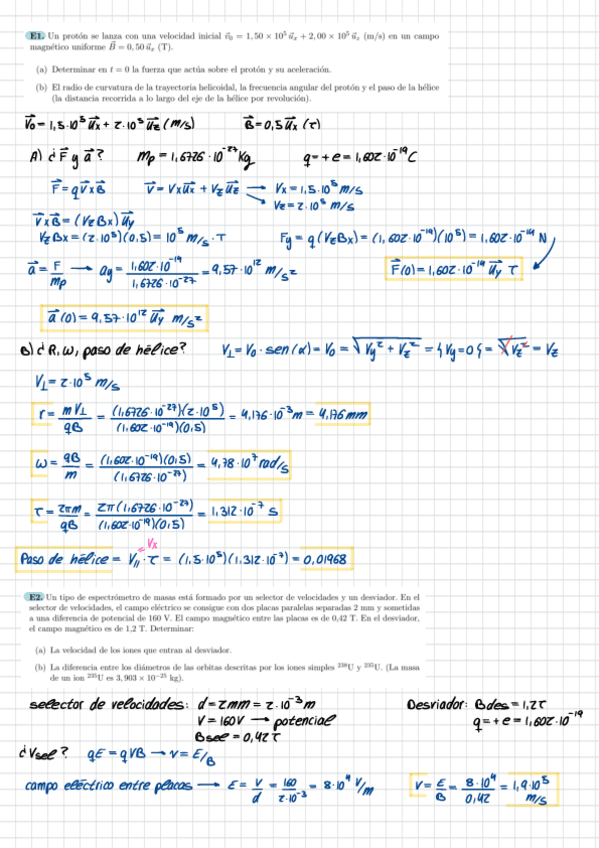 E1. Un protón se lanza con una velocidad inicial v⃗₀ = 1,50 × 10⁵ u⃗ₓ + 2,00 × 10⁵ u⃗_z (m/s) en un campo
magnético uniforme B⃗ = 0,50 u⃗ₓ (T).
(a) Determinar en t = 0 la fuerza que actúa sobre el protón y su aceleración.
(b) El radio de curvatura de la trayectoria helicoidal, la frecuencia angular del protón y el paso de la hélice
(la distancia recorrida a lo largo del eje de la hélice por revolución).
V⃗o = 1,5·10⁵ u⃗x + 2·10⁵ u⃗z (m/s) B⃗ = 0,5 u⃗x (T)
A) ¿F⃗ y a⃗? mp = 1,6726·10⁻²⁷ kg q = +e = 1,602·10⁻¹⁹ C
F⃗ = qV⃗xB⃗ V⃗ = Vx u⃗x + Vz u⃗z → Vx = 1,5·10⁵ m/s
→ Vz = 2·10⁵ m/s
V⃗xB⃗ = (VzBx) u⃗y
VzBx = (2·10⁵)(0,5) = 10⁵ m/s·T Fy = q(VzBx) = (1,602·10⁻¹⁹)(10⁵) = 1,602·10⁻¹⁴ N
a⃗ = F/mp → ay = 1,602·10⁻¹⁴/1,6726·10⁻²⁷ = 9,57·10¹² m/s² F⃗(0) = 1,602·10⁻¹⁴ u⃗y T
a⃗(0) = 9,57·10¹² u⃗y m/s²
B) ¿R, ω, paso de hélice? V⊥ = Vo · sen(α) = Vo = √(Vy² + Vz²) = {Vy=0} = √(Vz²) = Vz
V⊥ = 2·10⁵ m/s
r = mV⊥/qB = (1,6726·10⁻²⁷)(2·10⁵)/(1,602·10⁻¹⁹)(0,5) = 4,176·10⁻³ m = 4,176 mm
ω = qB/m = (1,602·10⁻¹⁹)(0,5)/(1,6726·10⁻²⁷) = 4,78·10⁷ rad/s
T = 2πm/qB = 2π(1,6726·10⁻²⁷)/(1,602·10⁻¹⁹)(0,5) = 1,312·10⁻⁷ s
= Vx
Paso de hélice = V∥ · T = (1,5·10⁵)(1,312·10⁻⁷) = 0,01968
E2. Un tipo de espectrómetro de masas está formado por un selector de velocidades y un desviador. En el
selector de velocidades, el campo eléctrico se consigue con dos placas paralelas separadas 2 mm y sometidas
a una diferencia de potencial de 160 V. El campo magnético entre las placas es de 0,42 T. En el desviador,
el campo magnético es de 1,2 T. Determinar:
(a) La velocidad de los iones que entran al desviador.
(b) La diferencia entre los diámetros de las orbitas descritas por los iones simples ²³⁸U y ²³⁵U. (La masa
de un ion ²³⁵U es 3,903 × 10⁻²⁵ kg).
selector de velocidades: d = 2mm = 2·10⁻³ m Desviador: Bdes = 1,2T
V = 160V → potencial q = +e = 1,602·10⁻¹⁹
Bsel = 0,42T
¿Vsel? qE = qVB → v = E/B
campo eléctrico entre placas → E = V/d = 160/2·10⁻³ = 8·10⁴ V/m V = E/B = 8·10⁴/0,42 = 1,9·10⁵ m/s